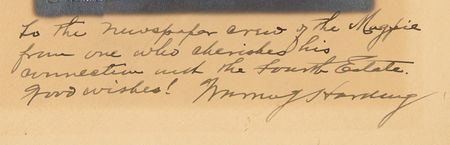 To the newspaper crew of the Magpie
from one who cherishes his
connection with the Fourth Estate.
Good wishes! Warren G Harding